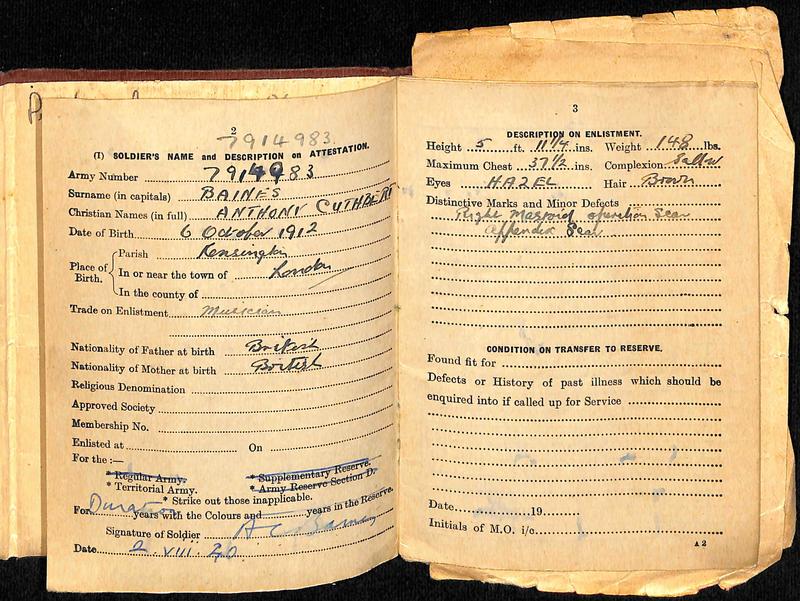 2
7914983.
(I) SOLDIER'S NAME and DESCRIPTION on ATTESTATION.
Army Number 7914983
Surname (in capitals) BAINES
Christian Names (in full) ANTHONY CUTHBERT
Date of Birth 6 October 1912
Place of Birth. Parish Kensington
In or near the town of London
In the county of
Trade on Enlistment Musician
Nationality of Father at birth British
Nationality of Mother at birth British
Religious Denomination
Approved Society
Membership No.
Enlisted at On
For the :—
* Regular Army. * Supplementary Reserve.
* Territorial Army. * Army Reserve Section D.
* Strike out those inapplicable.
For Duration years with the Colours and years in the Reserve.
Signature of Soldier A C Baines
Date 2. VIII. 40
3
DESCRIPTION ON ENLISTMENT.
Height 5 ft. 11 1/4 ins. Weight 148 lbs.
Maximum Chest 37 1/2 ins. Complexion Sallow
Eyes HAZEL Hair Brown
Distinctive Marks and Minor Defects
Right Mastoid operation Scar
Appendix Scar
CONDITION ON TRANSFER TO RESERVE.
Found fit for
Defects or History of past illness which should be
enquired into if called up for Service
Date 19
Initials of M.O. i/c
A 2